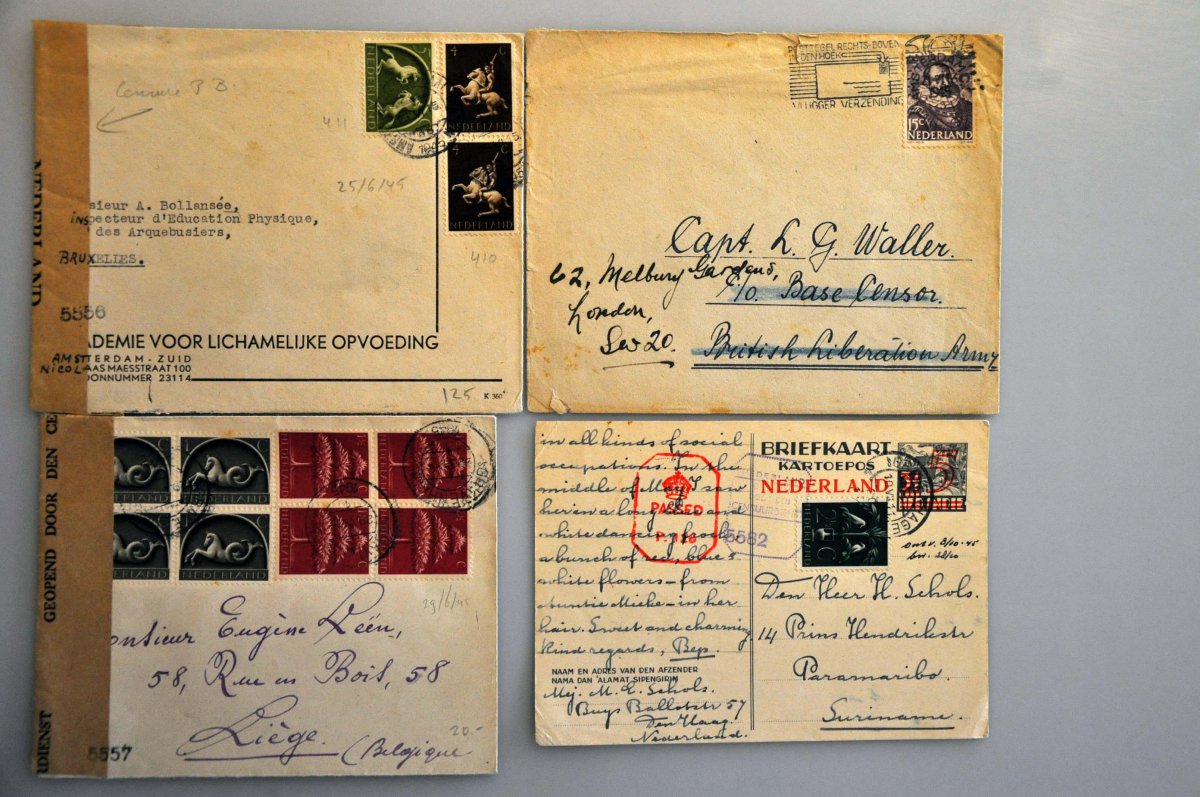 Censure P.B.
411
25/6/45
410
NEDERLAND
C
4 C
NEDERLAND
NEDERLAND
NEDERLAND
sieur A. Bollansée,
inspecteur d'Education Physique,
des Arquebusiers,
BRUXELLES.
5556
ADEMIE VOOR LICHAMELIJKE OPVOEDING
AMSTERDAM - ZUID
NICOLAAS MAESSTRAAT 100
OONNUMMER 23114
125
K 360
POSTZEGEL RECHTS-BOVEN
IN DEN HOEK
VLUGGER VERZENDING
1945
15 CT
NEDERLAND
Capt. L. G. Waller.
62, Melbury Gardens,
c/o. Base Censor.
London,
Sw 20.
British Liberation Army
GEOPEND DOOR DEN CE
RDIENST
5557
NEDERLAND
NEDERLAND
NEDERLAND
NEDERLAND
29/6/45
onsieur Eugène Léén,
58, Rue en Bois, 58
Liège.
(Belgique
20.-
in all kinds of social
occupations. In the
middle of May I saw
her in a long and
white dancing frock
a bunch of red, blue &
white flowers - from
Auntie Mieke - in her
hair. Sweet and charming
Kind regards, Bep.
NAAM EN ADRES VAN DEN AFZENDER
NAMA DAN ALAMAT SIPENGIRIM
Mej. M. L. Schols.
Buys Ballotstr 57
Den Haag.
Nederland.
PASSED
P.
5582
BRIEFKAART
KARTOEPOS
NEDERLAND
5
2½ C
NEDERLAND
Den Heer H. Schols.
14 Prins Hendrikstr
Paramaribo.
Suriname.